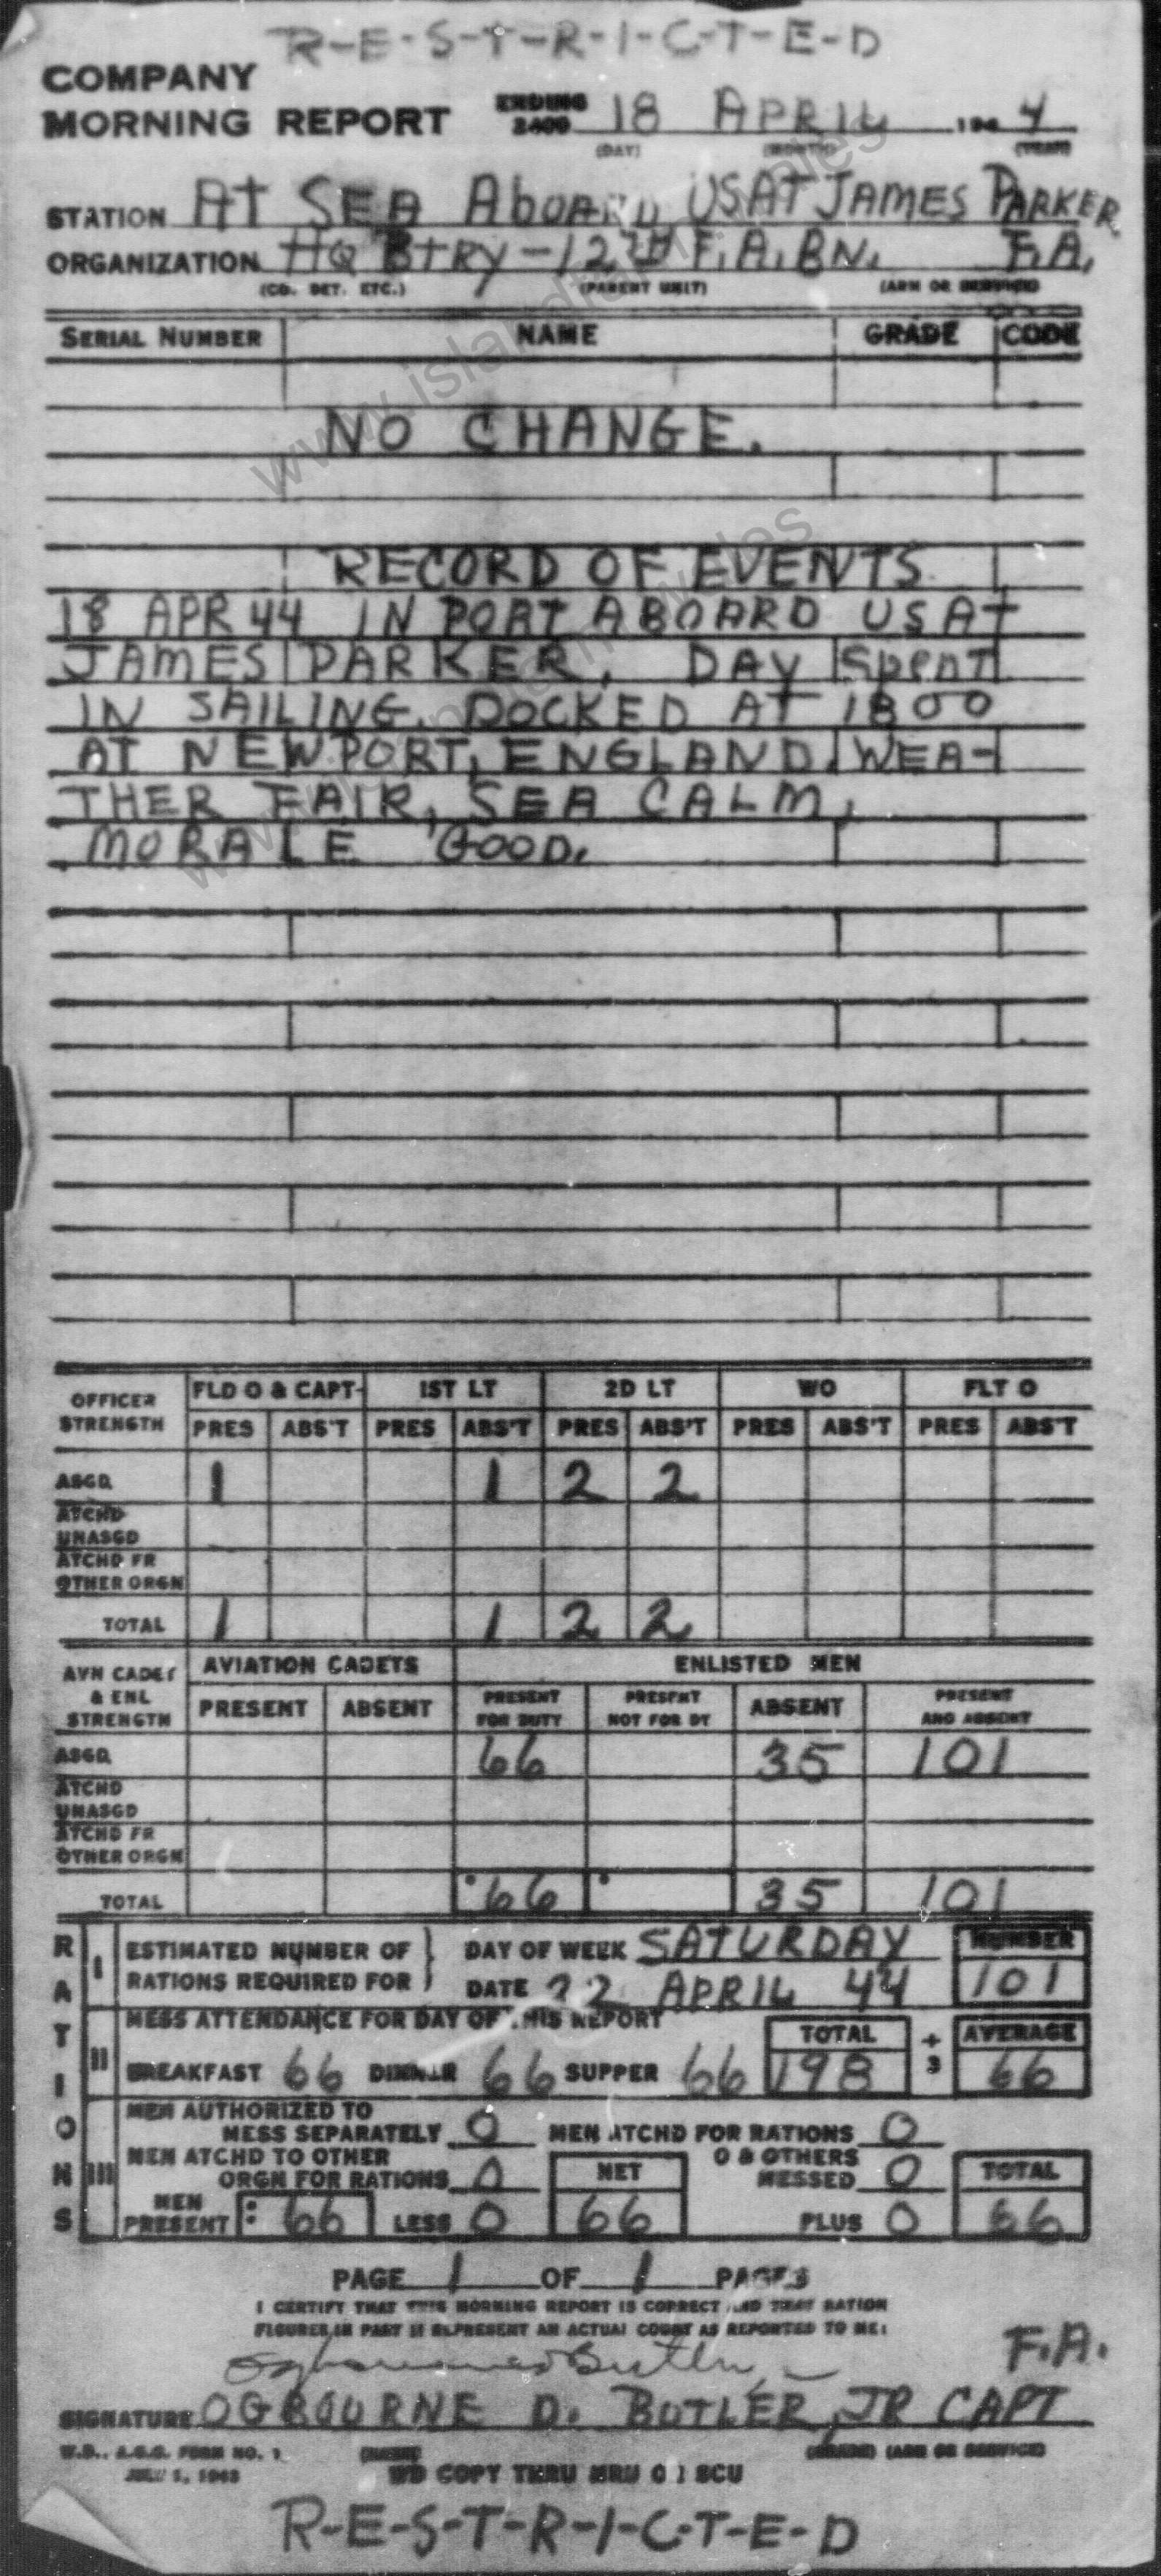 R-E-S-T-R-I-C-T-E-D
COMPANY
MORNING REPORT ENDING 2400 18 APRIL 194 4
(DAY) (MONTH) (YEAR)
STATION At SEA AboARD USAT JAMES PARKER
ORGANIZATION HQ BtRy - 12 F.A. BN. F.A.
(CO. DET. ETC.) (PARENT UNIT) (ARM OR SERVICE)
SERIAL NUMBER NAME GRADE CODE
NO CHANGE.
RECORD OF EVENTS
18 APR 44 IN PORT ABOARD USAT
JAMES PARKER. DAY SPENT
IN SAILING. DOCKED AT 1800
AT NEWPORT, ENGLAND. WEA-
THER FAIR, SEA CALM,
MORALE GOOD.
OFFICER STRENGTH FLD O & CAPT- 1ST LT 2D LT WO FLT O
PRES ABS'T PRES ABS'T PRES ABS'T PRES ABS'T PRES ABS'T
ASGD 1 1 2 2
ATCHD UNASGD
ATCHD FR OTHER ORGN
TOTAL 1 1 2 2
AVN CADET & ENL STRENGTH AVIATION CADETS ENLISTED MEN
PRESENT ABSENT PRESENT FOR DUTY PRESENT NOT FOR DY ABSENT PRESENT AND ABSENT
ASGD 66 35 101
ATCHD UNASGD
ATCHD FR OTHER ORGN
TOTAL 66 35 101
RATIONS
I ESTIMATED NUMBER OF RATIONS REQUIRED FOR DAY OF WEEK SATURDAY NUMBER
DATE 22 APRIL 44 101
II MESS ATTENDANCE FOR DAY OF THIS REPORT TOTAL ÷ 3 AVERAGE
BREAKFAST 66 DINNER 66 SUPPER 66 198 66
III MEN AUTHORIZED TO MESS SEPARATELY 0 MEN ATCHD FOR RATIONS 0
MEN ATCHD TO OTHER ORGN FOR RATIONS 0 NET O & OTHERS MESSED 0 TOTAL
MEN PRESENT 66 LESS 0 66 PLUS 0 66
PAGE 1 OF 1 PAGES
I CERTIFY THAT THIS MORNING REPORT IS CORRECT AND THAT RATION
FIGURES IN PART II REPRESENT AN ACTUAL COUNT AS REPORTED TO ME:
F.A.
SIGNATURE OGBOURNE D. BUTLER, JR CAPT
W.D., A.G.O. FORM NO. 1 (NAME) (GRADE) (ARM OR SERVICE)
JULY 1, 1943 WD COPY THRU MRU OR SCU
R-E-S-T-R-I-C-T-E-D